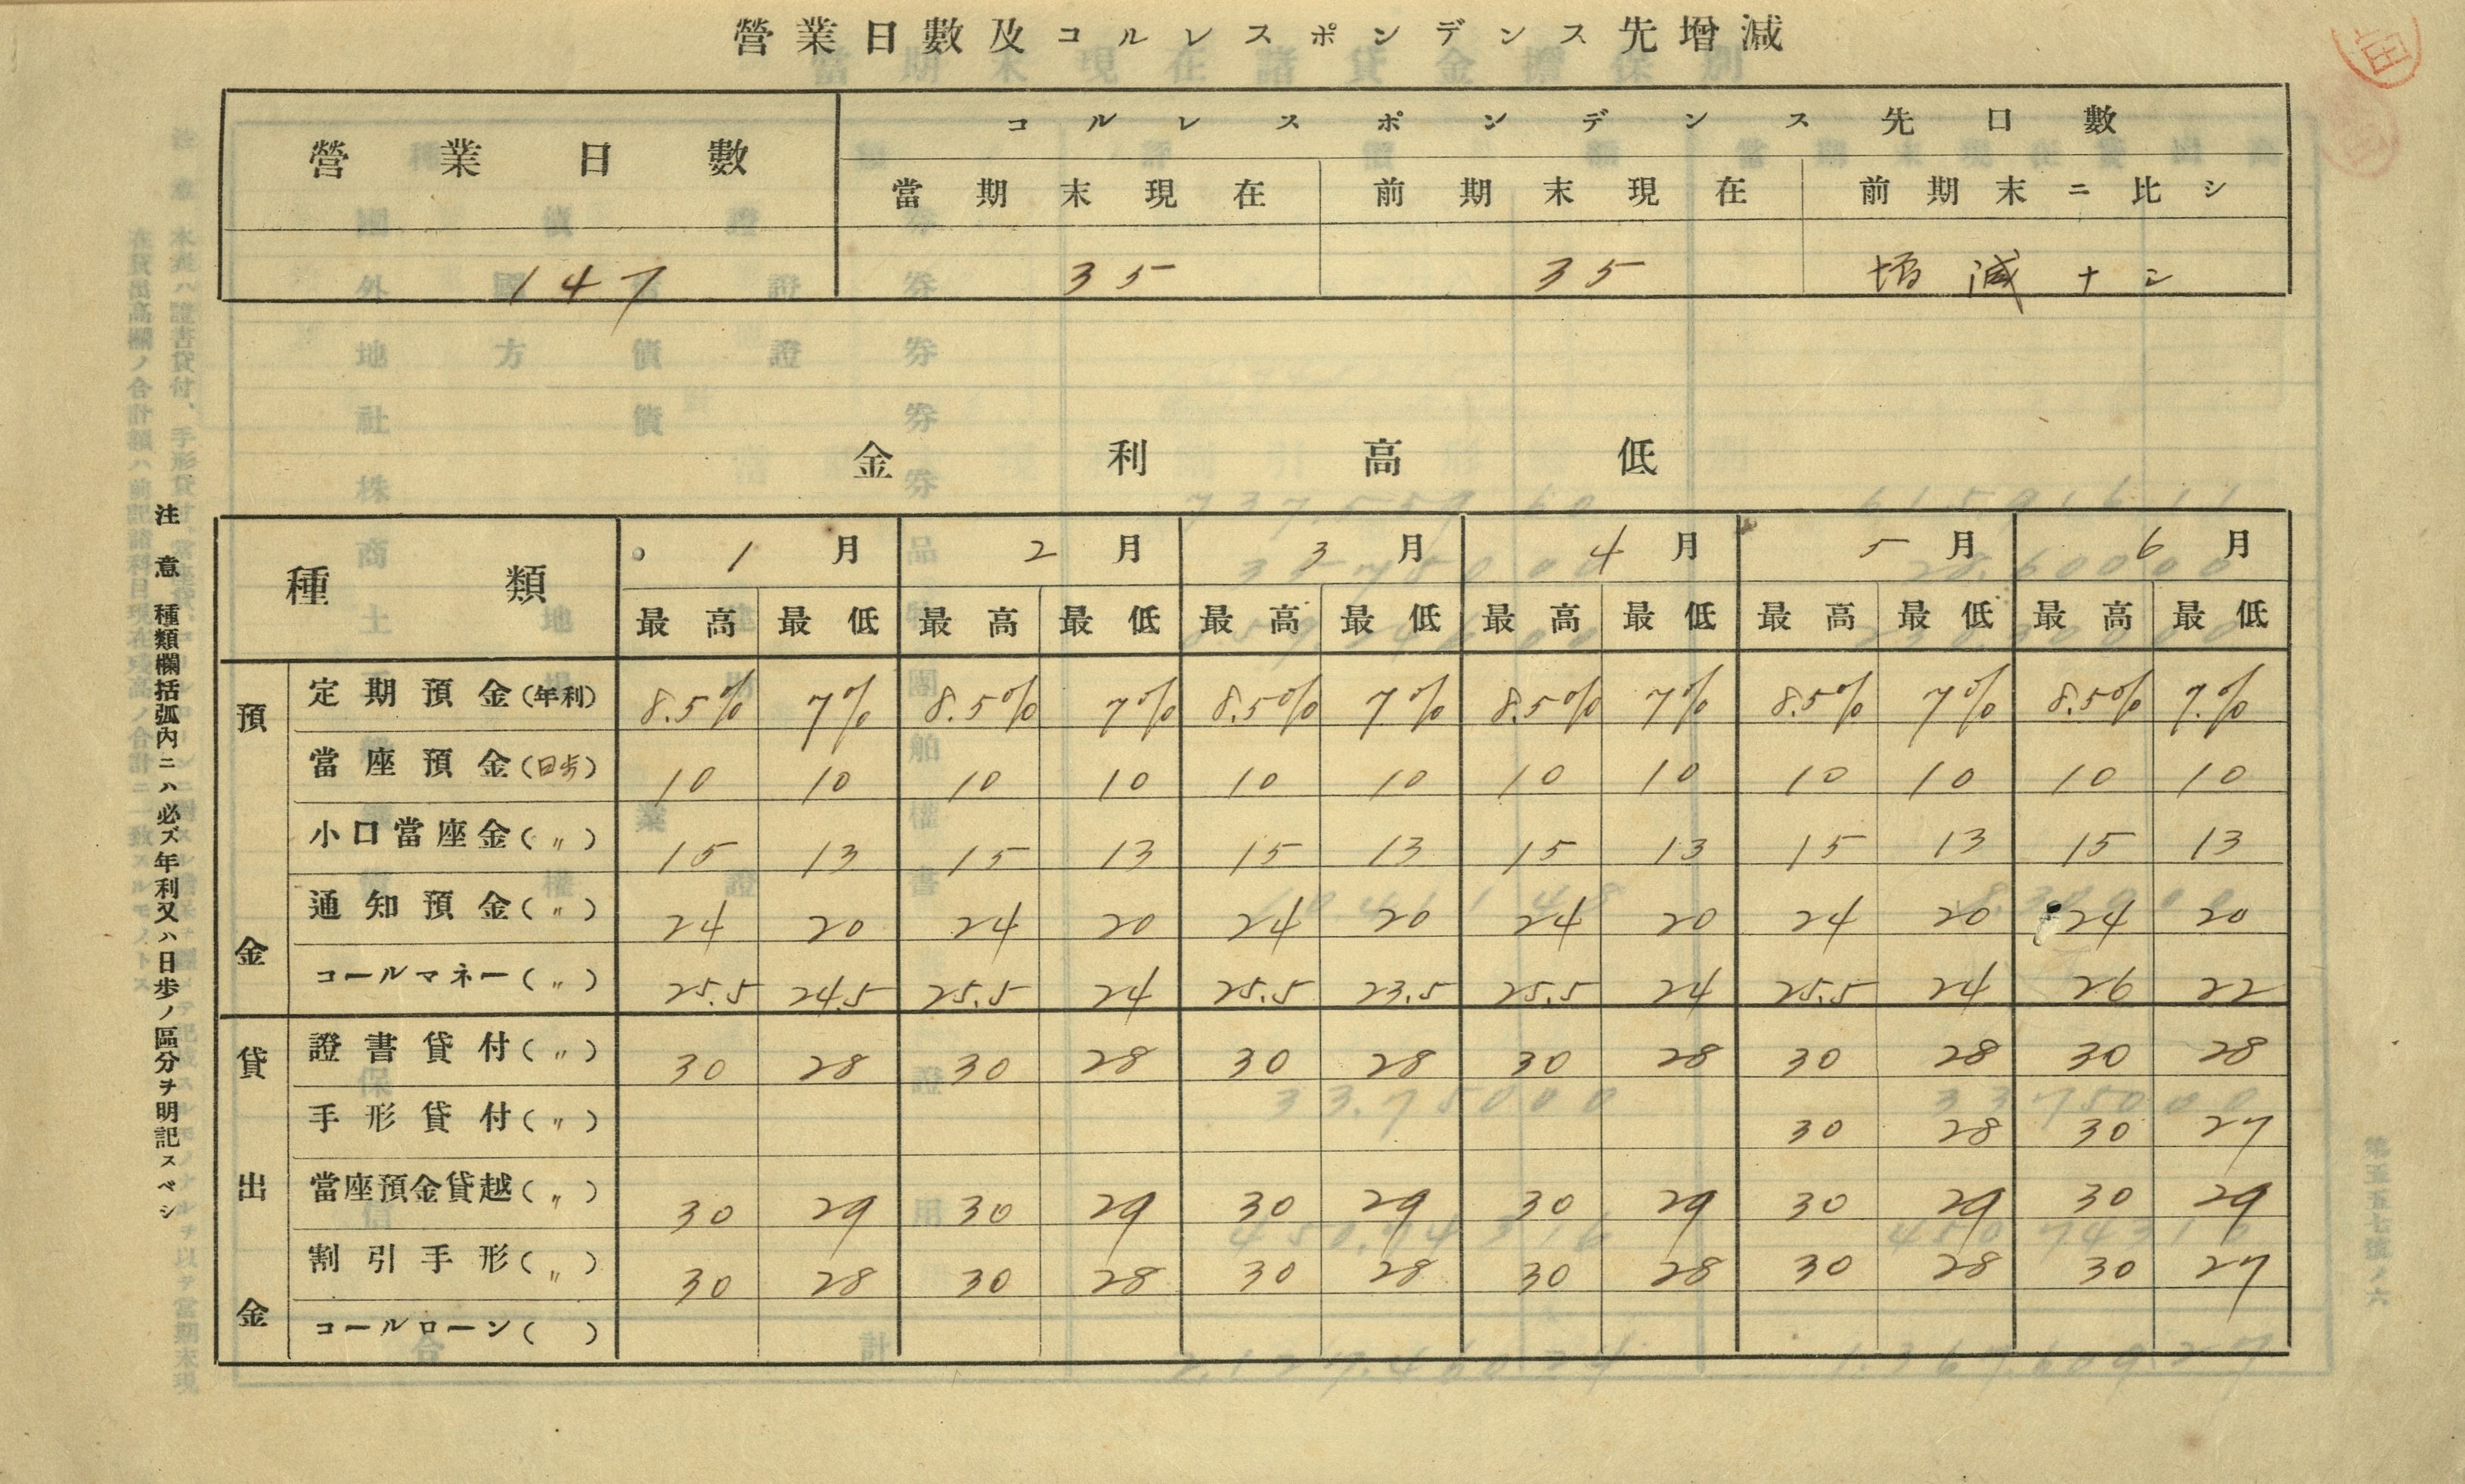 營業日數及コルレスポンデンス先增減
營業日數 コルレスポンデンス先口數
當期末現在 前期末現在 前期末ニ比シ
147 35 35 增減ナシ
金利高低
種類 1月 2月 3月 4月 5月 6月
最高 最低 最高 最低 最高 最低 最高 最低 最高 最低 最高 最低
預金
定期預金(年利) 8.5% 7% 8.5% 7% 8.5% 7% 8.5% 7% 8.5% 7% 8.5% 7.%
當座預金(日歩) 10 10 10 10 10 10 10 10 10 10 10 10
小口當座金(〃) 15 13 15 13 15 13 15 13 15 13 15 13
通知預金(〃) 24 20 24 20 24 20 24 20 24 20 24 20
コールマネー(〃) 25.5 24.5 25.5 24 25.5 23.5 25.5 24 25.5 24 26 22
貸出金
證書貸付(〃) 30 28 30 28 30 28 30 28 30 28 30 28
手形貸付(〃) 30 28 30 27
當座預金貸越(〃) 30 29 30 29 30 29 30 29 30 29 30 29
割引手形(〃) 30 28 30 28 30 28 30 28 30 28 30 27
コールローン( )
注意 種類欄括弧內ニハ必ズ年利又ハ日歩ノ區分ヲ明記スベシ